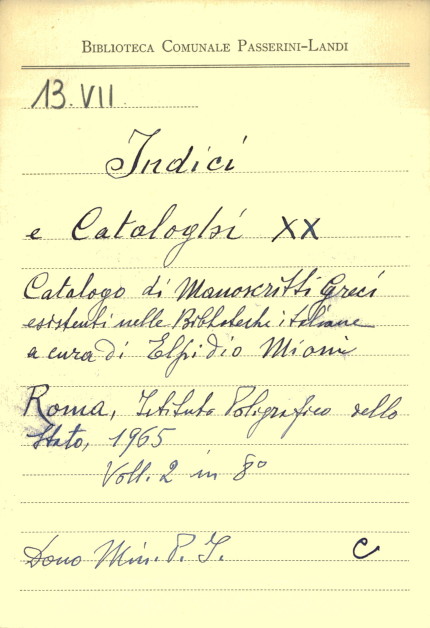 BIBLIOTECA COMUNALE PASSERINI-LANDI
13.VII
Indici
e Cataloghi XX
Catalogo di Manoscritti Greci
esistenti nelle Biblioteche italiane
a cura di Elpidio Mioni
Roma, Istituto Poligrafico dello
Stato, 1965
Voll. 2 in 8°
Dono Min. P. I. C